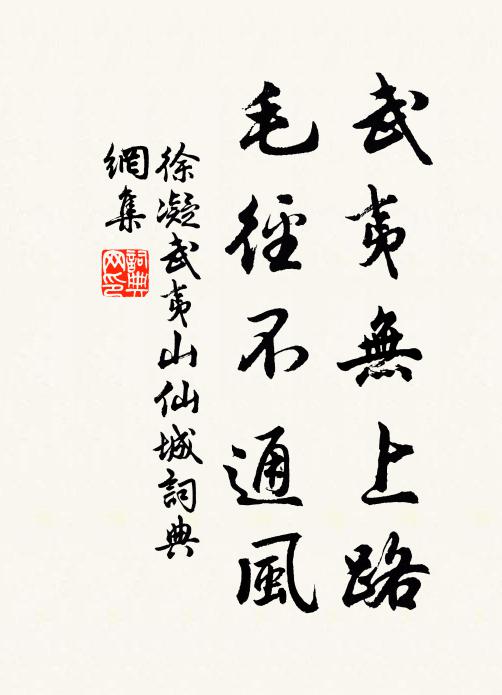 武夷無上路
毛徑不通風
徐凝武夷山仙城詞典
網集
詞典網印